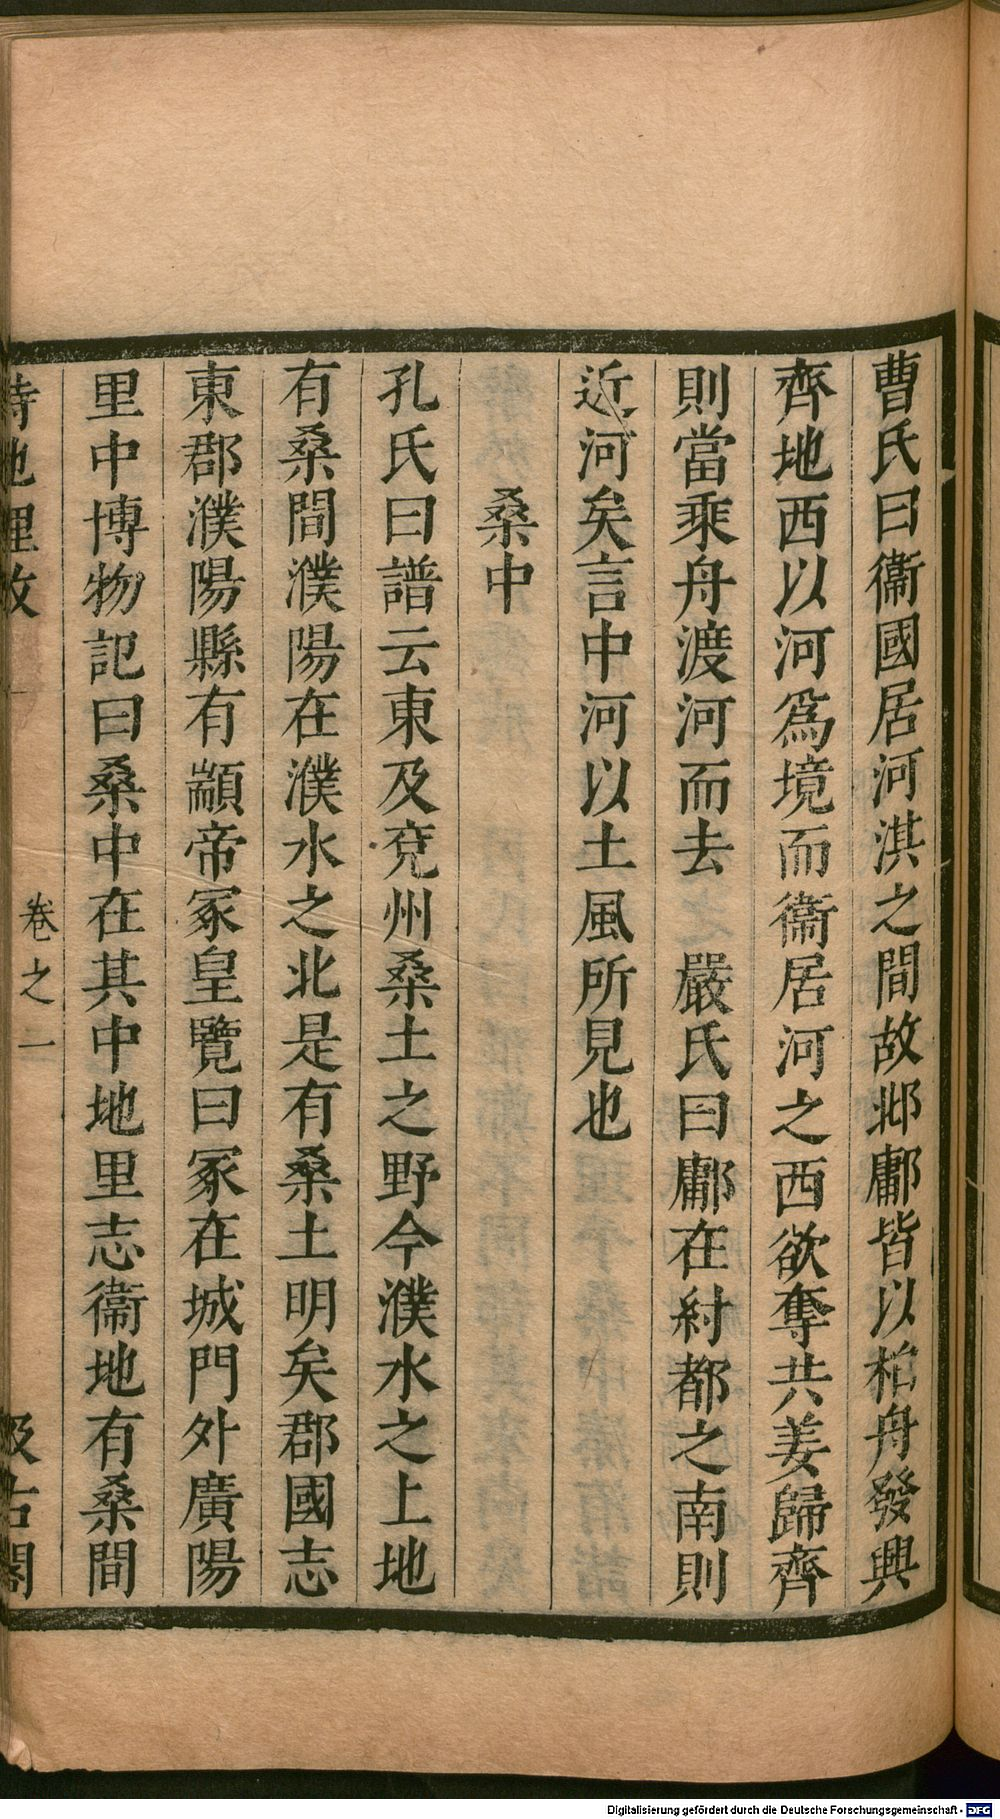 曹氏曰衞國居河淇之間故邶鄘皆以柏舟發興
齊地西以河爲境而衞居河之西欲奪共姜歸齊
則當乘舟渡河而去　嚴氏曰鄘在紂都之南則
近河矣言中河以土風所見也
桑中
孔氏曰譜云東及兖州桑土之野今濮水之上地
有桑間濮陽在濮水之北是有桑土明矣郡國志
東郡濮陽縣有顓帝冢皇覽曰冢在城門外廣陽
里中博物記曰桑中在其中地里志衞地有桑間
詩地理攷
卷之一
汲古閣
Digitalisierung gefördert durch die Deutsche Forschungsgemeinschaft - DFG